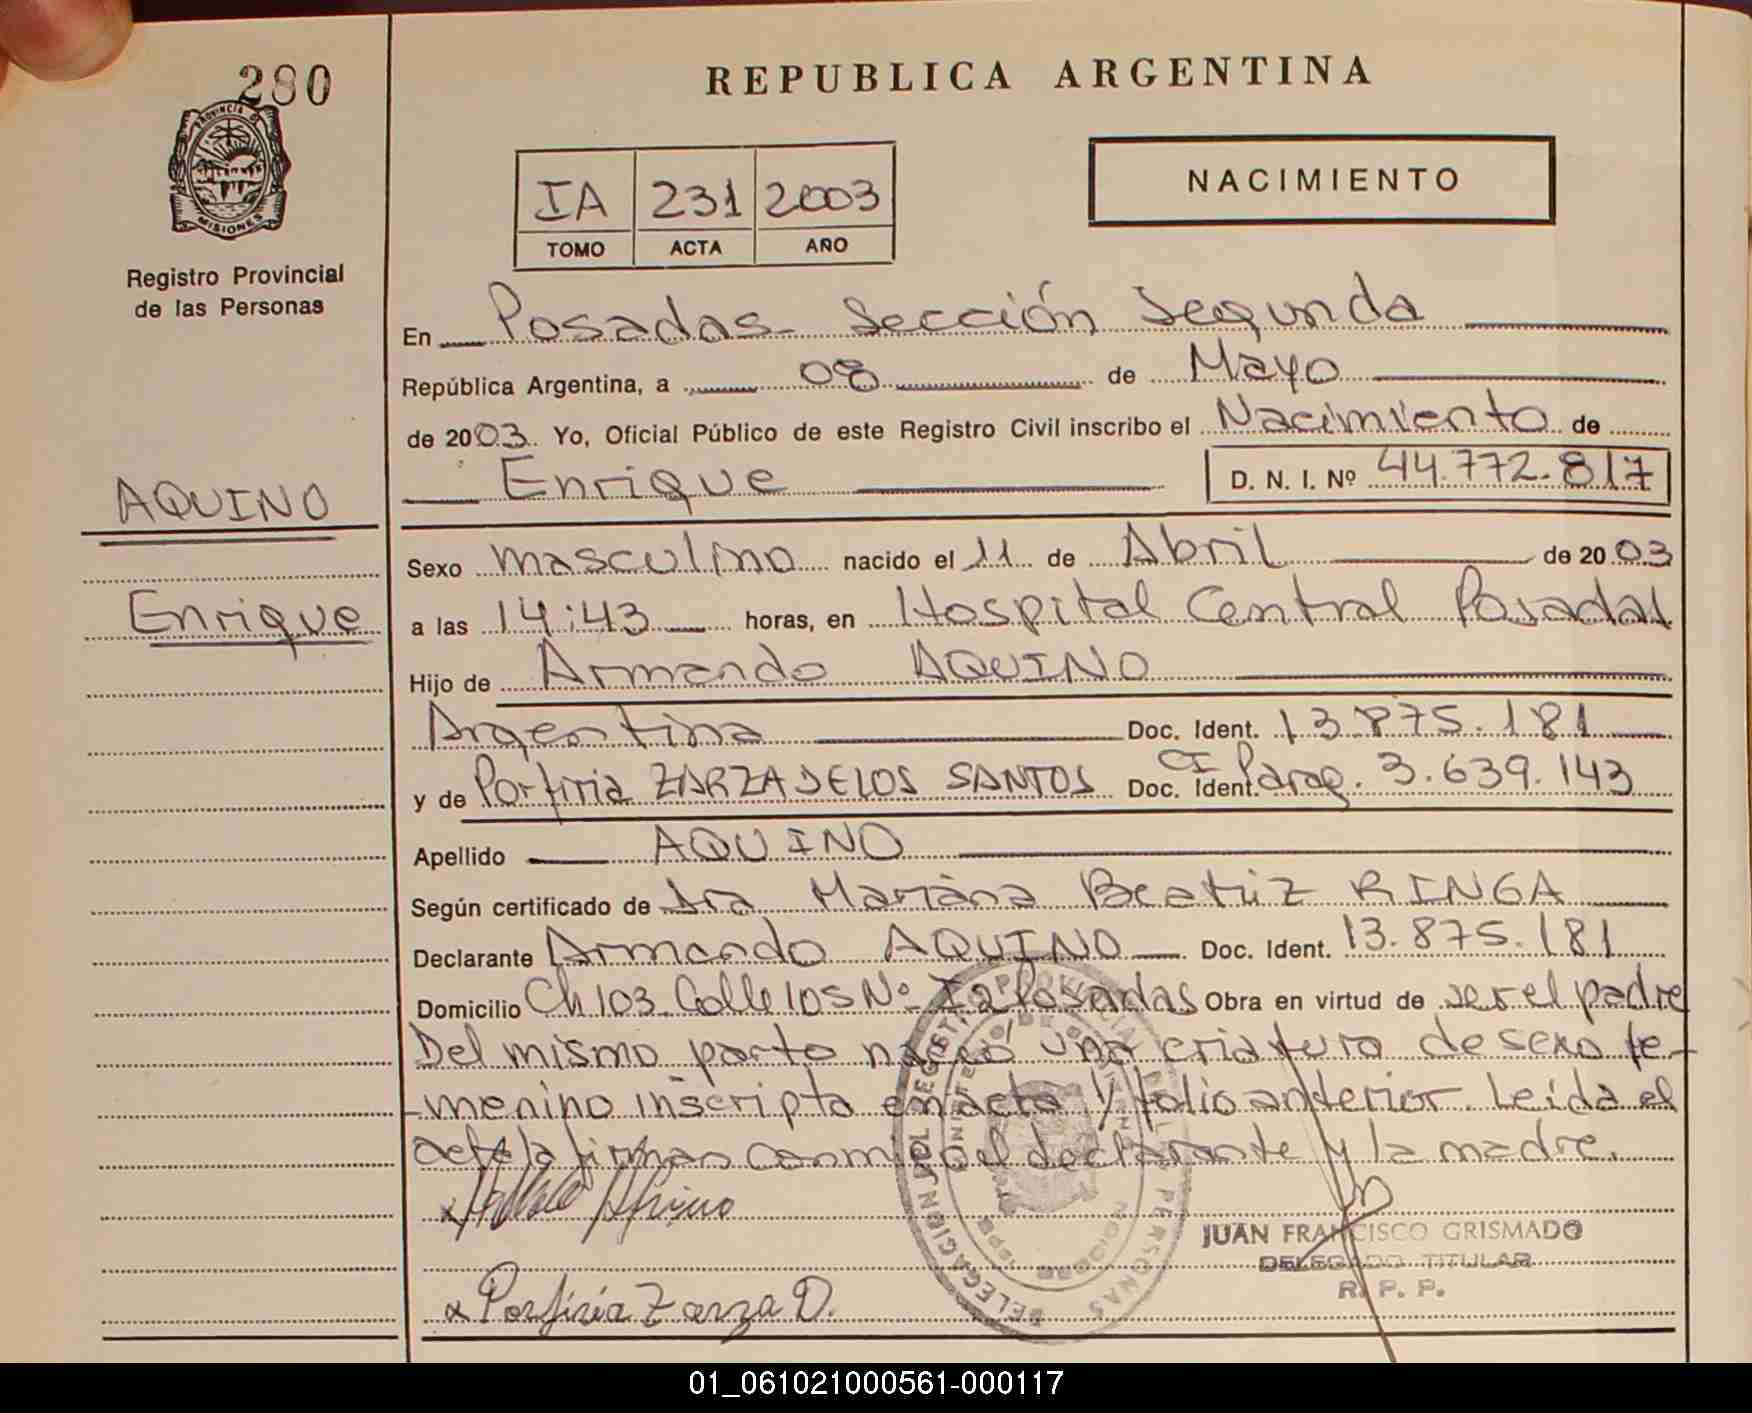 280
PROVINCIA DE
MISIONES
Registro Provincial
de las Personas
AQUINO
Enrique
REPUBLICA ARGENTINA
IA 231 2003
TOMO ACTA AÑO
NACIMIENTO
En Posadas - Sección Segunda
República Argentina, a 08 de Mayo
de 2003. Yo, Oficial Público de este Registro Civil inscribo el Nacimiento de
Enrique D. N. I. Nº 44.772.817
Sexo masculino nacido el 11 de Abril de 2003
a las 14:43 horas, en Hospital Central Posadas
Hijo de Armando AQUINO
Argentina Doc. Ident. 13.875.181
y de Porfiria ZARZA DE LOS SANTOS Doc. Ident. CI Parag. 3.639.143
Apellido AQUINO
Según certificado de Dra Mariana Beatriz RINGA
Declarante Armando AQUINO Doc. Ident. 13.875.181
Domicilio Ch 103 Calle 105 Nº Posadas Obra en virtud de ser el padre
Del mismo parto nació una criatura de sexo fe-
-menino inscripta en acta y folio anterior. Leída el
acta la firman conmigo el declarante y la madre.
x Aquino
JUAN FRANCISCO GRISMADO
DELEGADO TITULAR
R. P. P.
x Porfiria Zarza D.
DELEGACION DEL REGIST. PROVINCIAL DE LAS PERSONAS
01_061021000561-000117